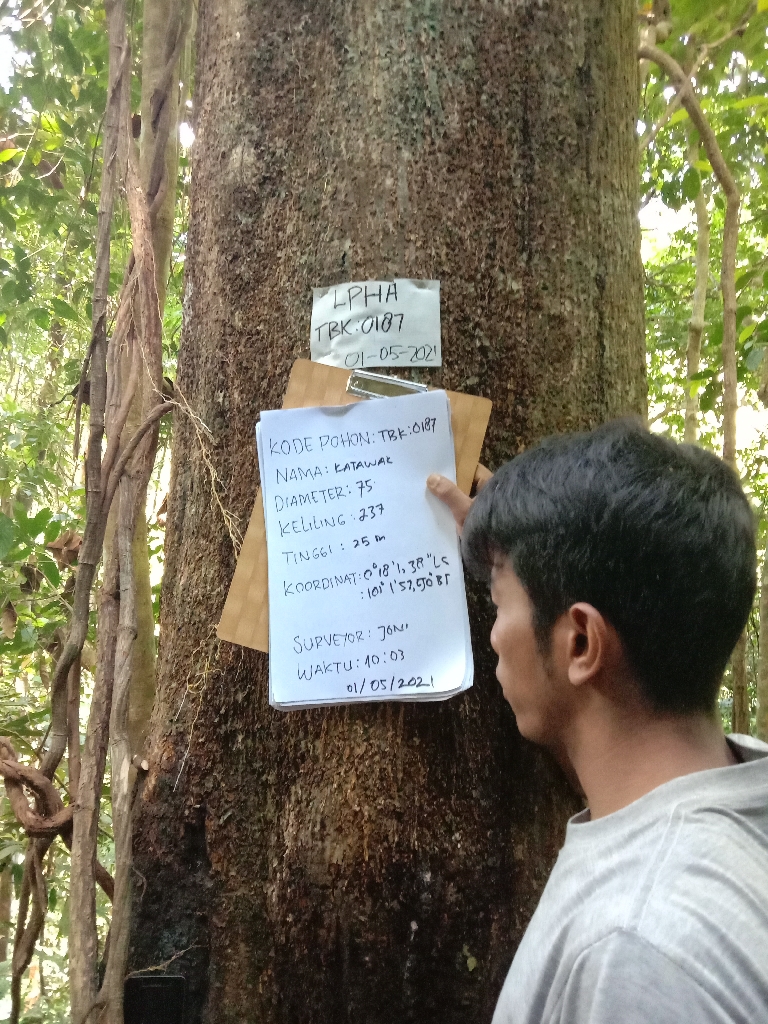 LPHA
TBK:0187
01-05-2021
KODE POHON: TBK:0187
NAMA: KATAWAK
DIAMETER: 75
KELILING: 237
TINGGI : 25 m
KOORDINAT: 0°18'1,38"LS
: 101°1'57,50"BT
SURVEYOR: JONI
WAKTU: 10:03
01/05/2021